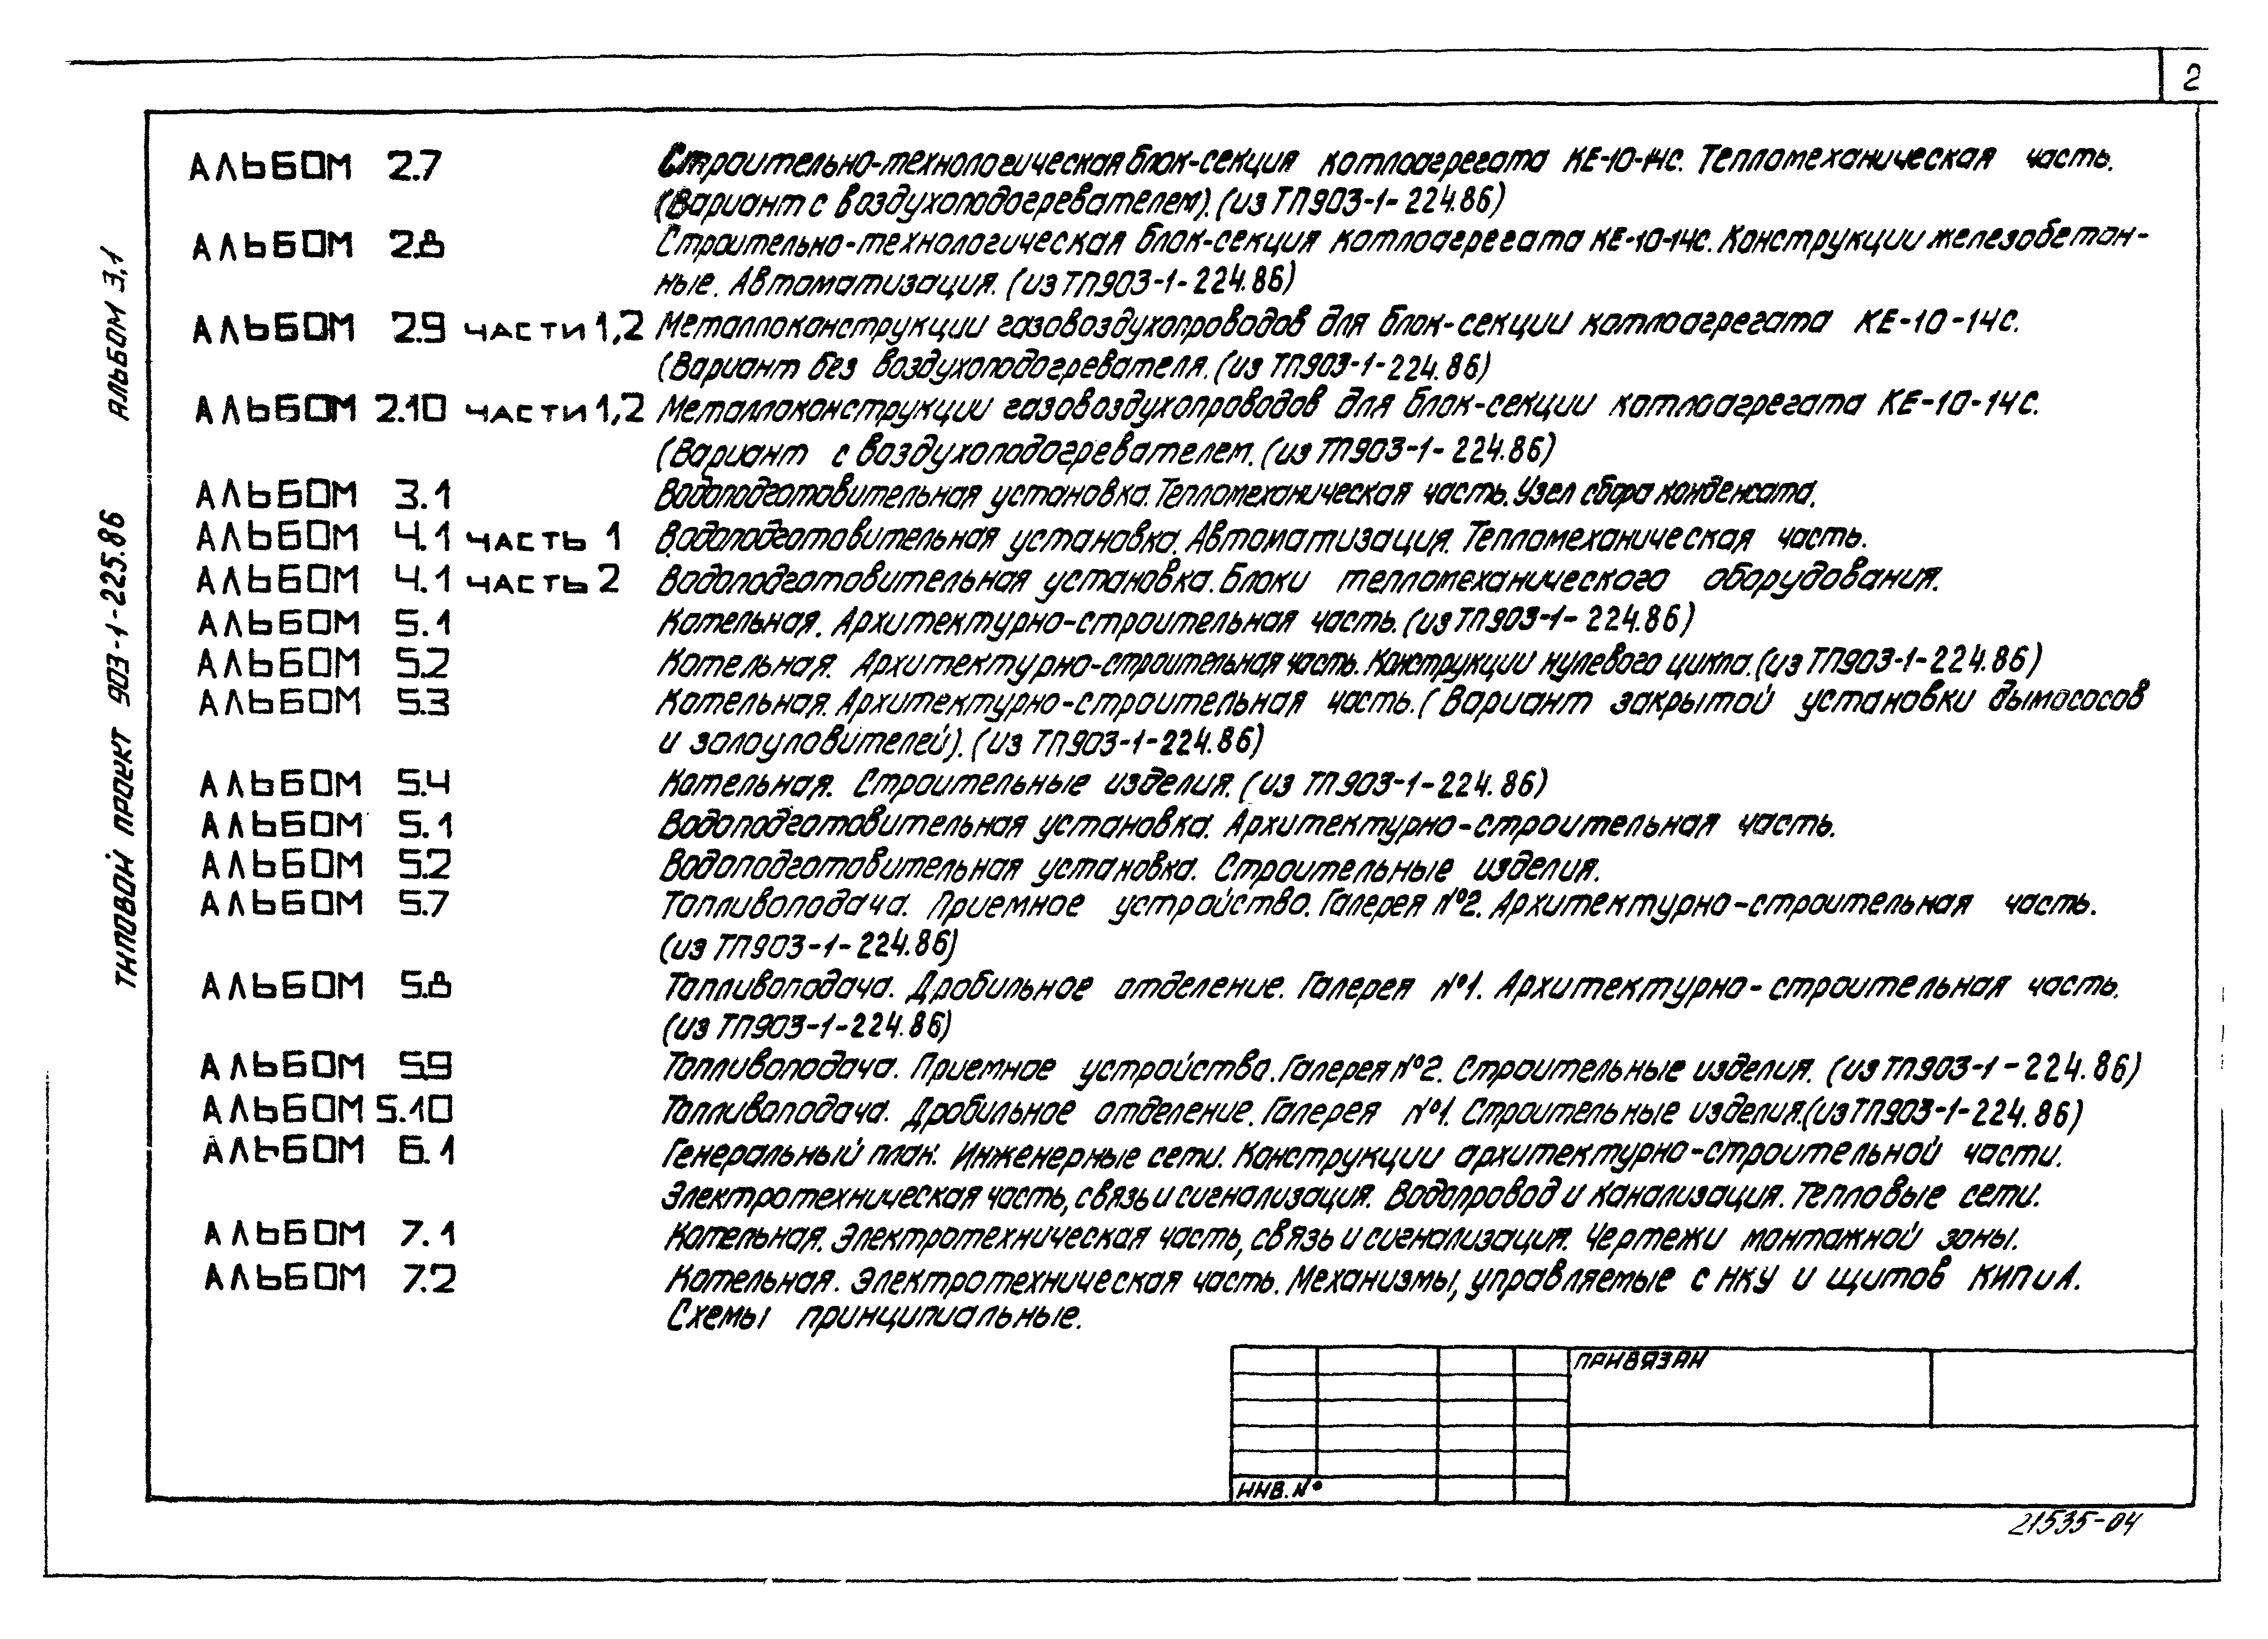 2
АЛЬБОМ 2.7 Строительно-технологическая блок-секция котлоагрегата КЕ-10-14С. Тепломеханическая часть.
(Вариант с воздухоподогревателем). (из ТП903-1-224.86)
АЛЬБОМ 2.8 Строительно-технологическая блок-секция котлоагрегата КЕ-10-14С. Конструкции железобетон-
ные. Автоматизация. (из ТП903-1-224.86)
АЛЬБОМ 2.9 ЧАСТИ 1,2 Металлоконструкции газовоздухопроводов для блок-секции котлоагрегата КЕ-10-14С.
(Вариант без воздухоподогревателя. (из ТП903-1-224.86)
АЛЬБОМ 2.10 ЧАСТИ 1,2 Металлоконструкции газовоздухопроводов для блок-секции котлоагрегата КЕ-10-14С.
(Вариант с воздухоподогревателем. (из ТП903-1-224.86)
АЛЬБОМ 3.1 Водоподготовительная установка. Тепломеханическая часть. Узел сбора конденсата.
АЛЬБОМ 4.1 ЧАСТЬ 1 Водоподготовительная установка. Автоматизация. Тепломеханическая часть.
АЛЬБОМ 4.1 ЧАСТЬ 2 Водоподготовительная установка. Блоки тепломеханического оборудования.
АЛЬБОМ 5.1 Котельная. Архитектурно-строительная часть. (из ТП903-1-224.86)
АЛЬБОМ 5.2 Котельная. Архитектурно-строительная часть. Конструкции нулевого цикла. (из ТП903-1-224.86)
АЛЬБОМ 5.3 Котельная. Архитектурно-строительная часть. (Вариант закрытой установки дымососов
и золоуловителей). (из ТП903-1-224.86)
АЛЬБОМ 5.4 Котельная. Строительные изделия. (из ТП903-1-224.86)
АЛЬБОМ 5.1 Водоподготовительная установка. Архитектурно-строительная часть.
АЛЬБОМ 5.2 Водоподготовительная установка. Строительные изделия.
АЛЬБОМ 5.7 Топливоподача. Приемное устройство. Галерея №2. Архитектурно-строительная часть.
(из ТП903-1-224.86)
АЛЬБОМ 5.8 Топливоподача. Дробильное отделение. Галерея №1. Архитектурно-строительная часть.
(из ТП903-1-224.86)
АЛЬБОМ 5.9 Топливоподача. Приемное устройство. Галерея №2. Строительные изделия. (из ТП903-1-224.86)
АЛЬБОМ 5.10 Топливоподача. Дробильное отделение. Галерея №1. Строительные изделия. (из ТП903-1-224.86)
АЛЬБОМ 6.1 Генеральный план. Инженерные сети. Конструкции архитектурно-строительной части.
Электротехническая часть, связь и сигнализация. Водопровод и канализация. Тепловые сети.
АЛЬБОМ 7.1 Котельная. Электротехническая часть, связь и сигнализация. Чертежи монтажной зоны.
АЛЬБОМ 7.2 Котельная. Электротехническая часть. Механизмы, управляемые с НКУ и щитов КИПиА.
Схемы принципиальные.
ТИПОВОЙ ПРОЕКТ 903-1-225.86 АЛЬБОМ 3.1
ПРИВЯЗАН
ИНВ. №
21535-04